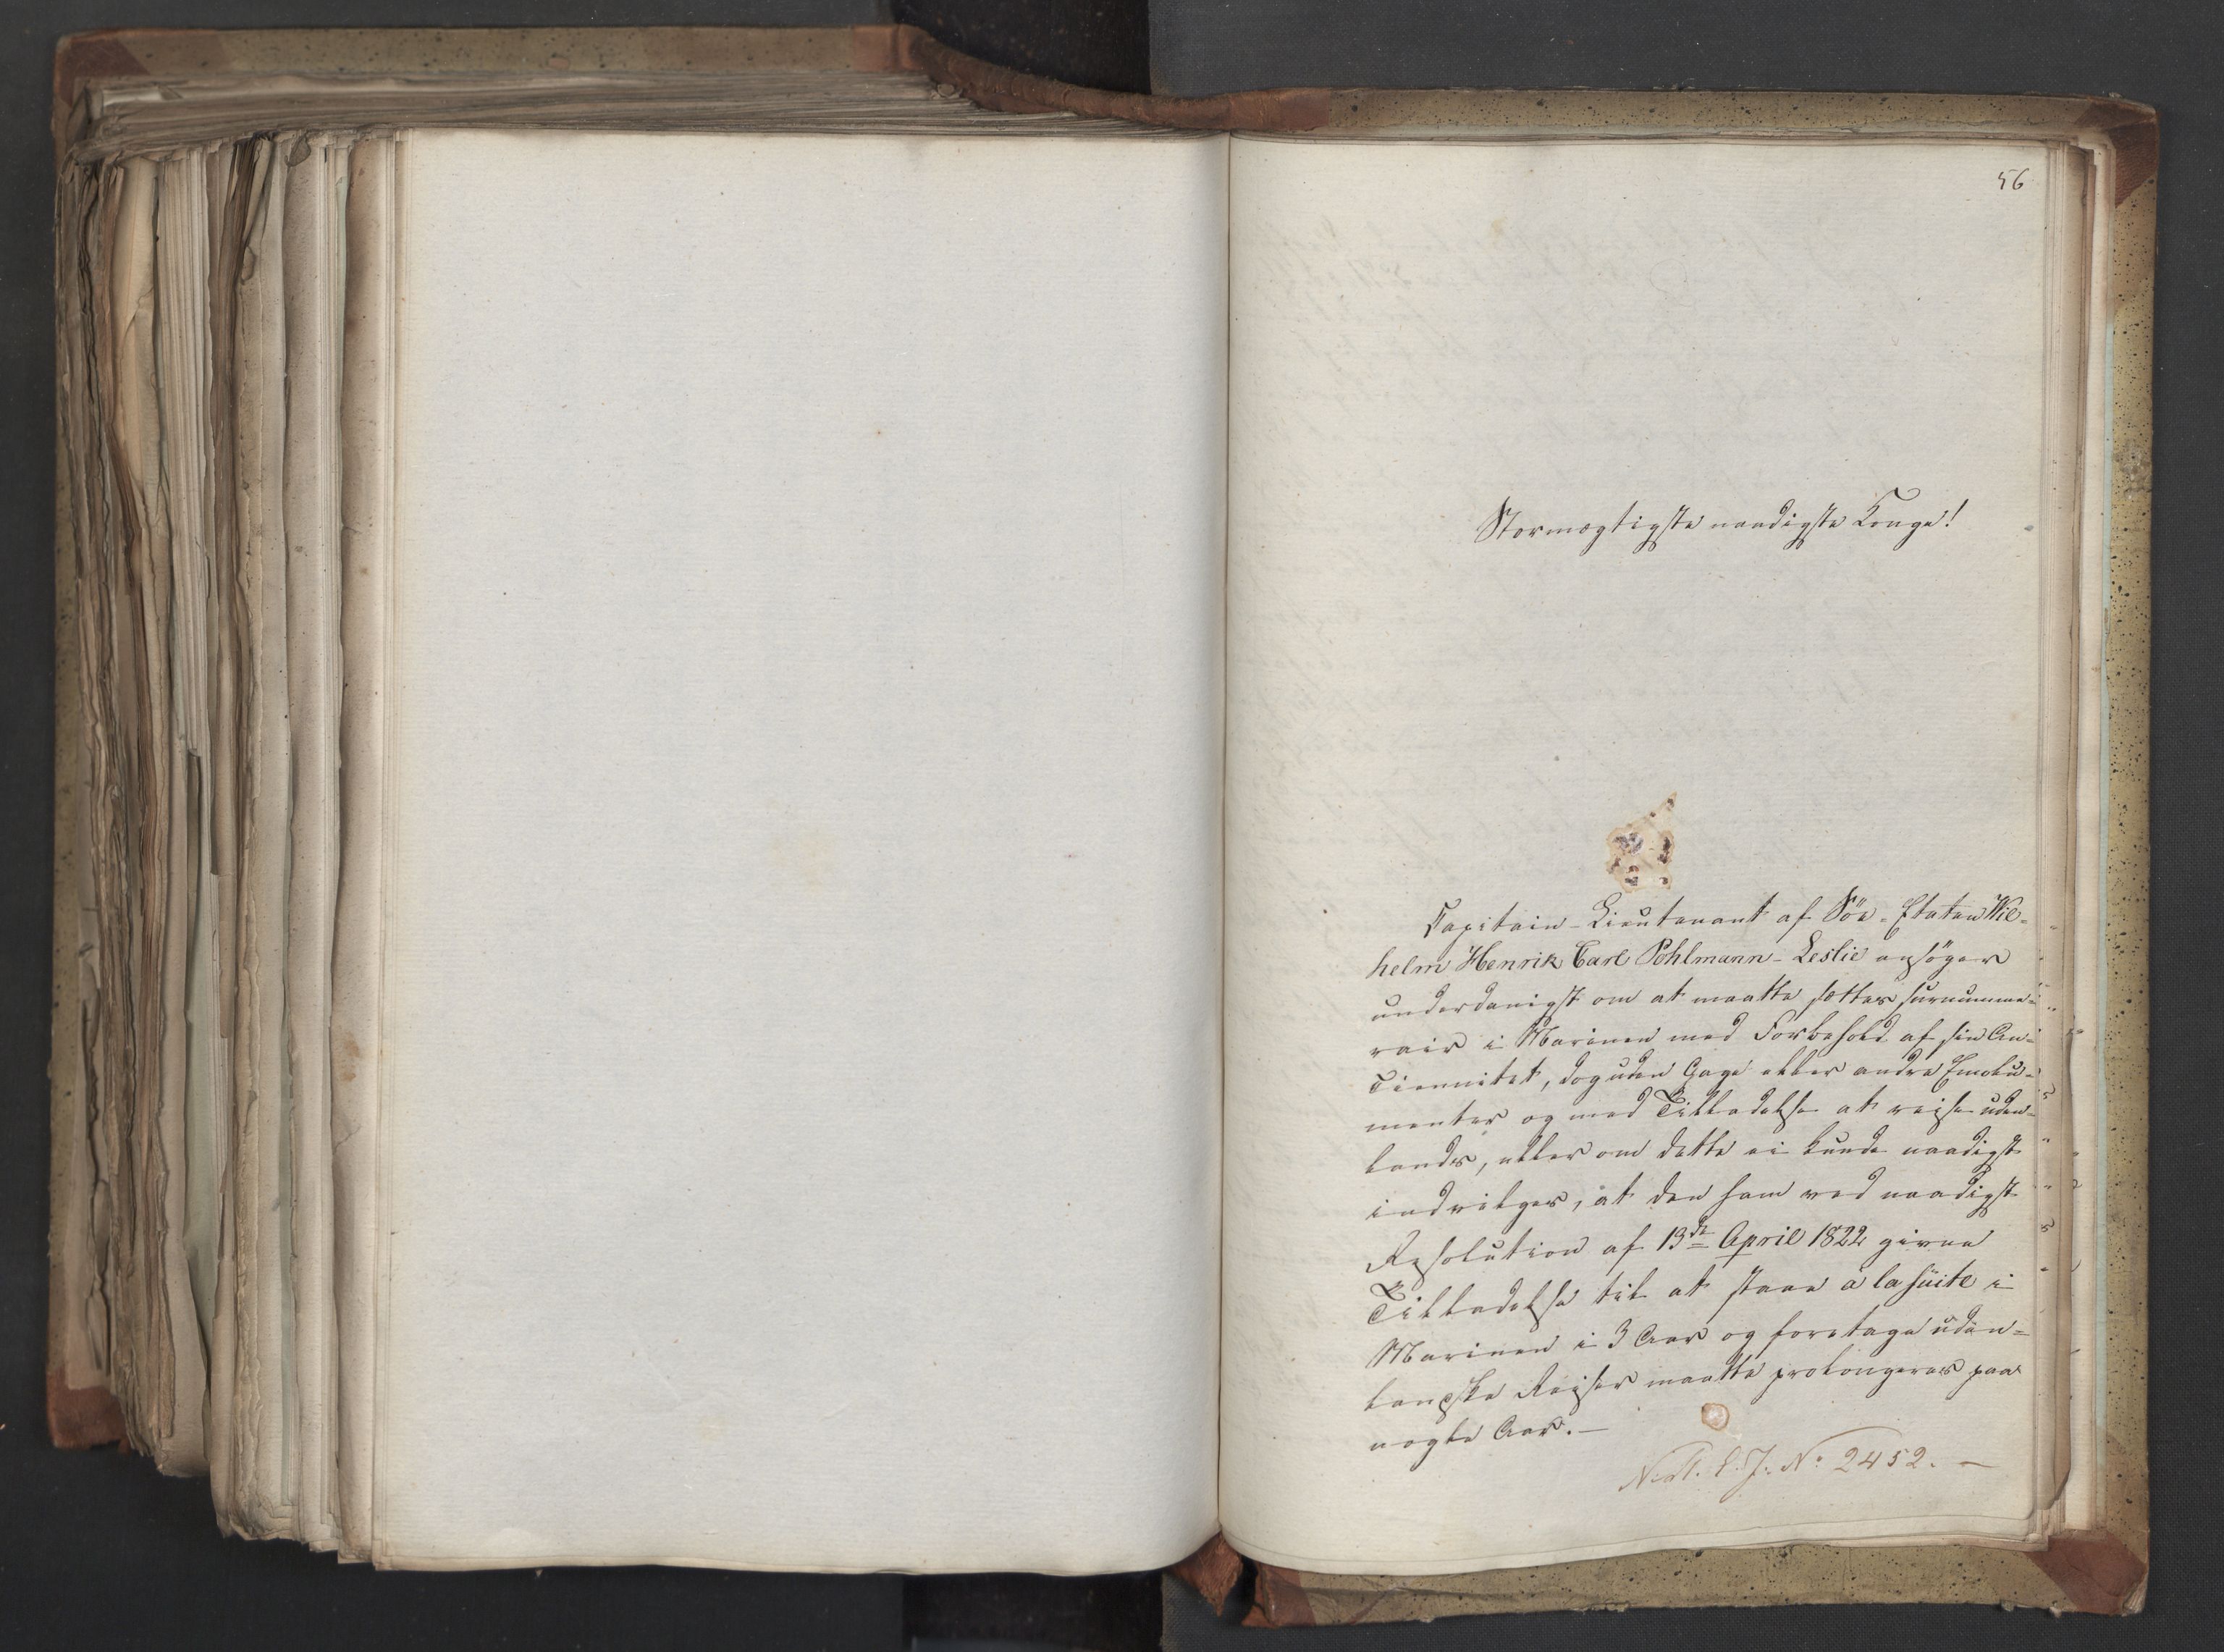 56
Stormægtigste naadigste Konge!
Capitain-Lieutenant af Söe-Etaten Wil-
helm Henrik Carl Pohlmann-Leslie ansöger
underdanigst om at maatte sættes surnumme-
rair i Marinen med Forbehold af sin An-
ciennitet, dog uden Gage eller andre Emolu-
menter og med Tilladelse at reise uden-
lands, eller om dette ei kunde naadigst
indvilges, at den ham ved naadigst
Resolution af 13de April 1822 givne
Tilladelse til at staae à la suite i
Marinen i 3 Aar og foretage uden-
landske Reiser maatte prolongeres paa
nogle Aar.—
J. No 2452. —